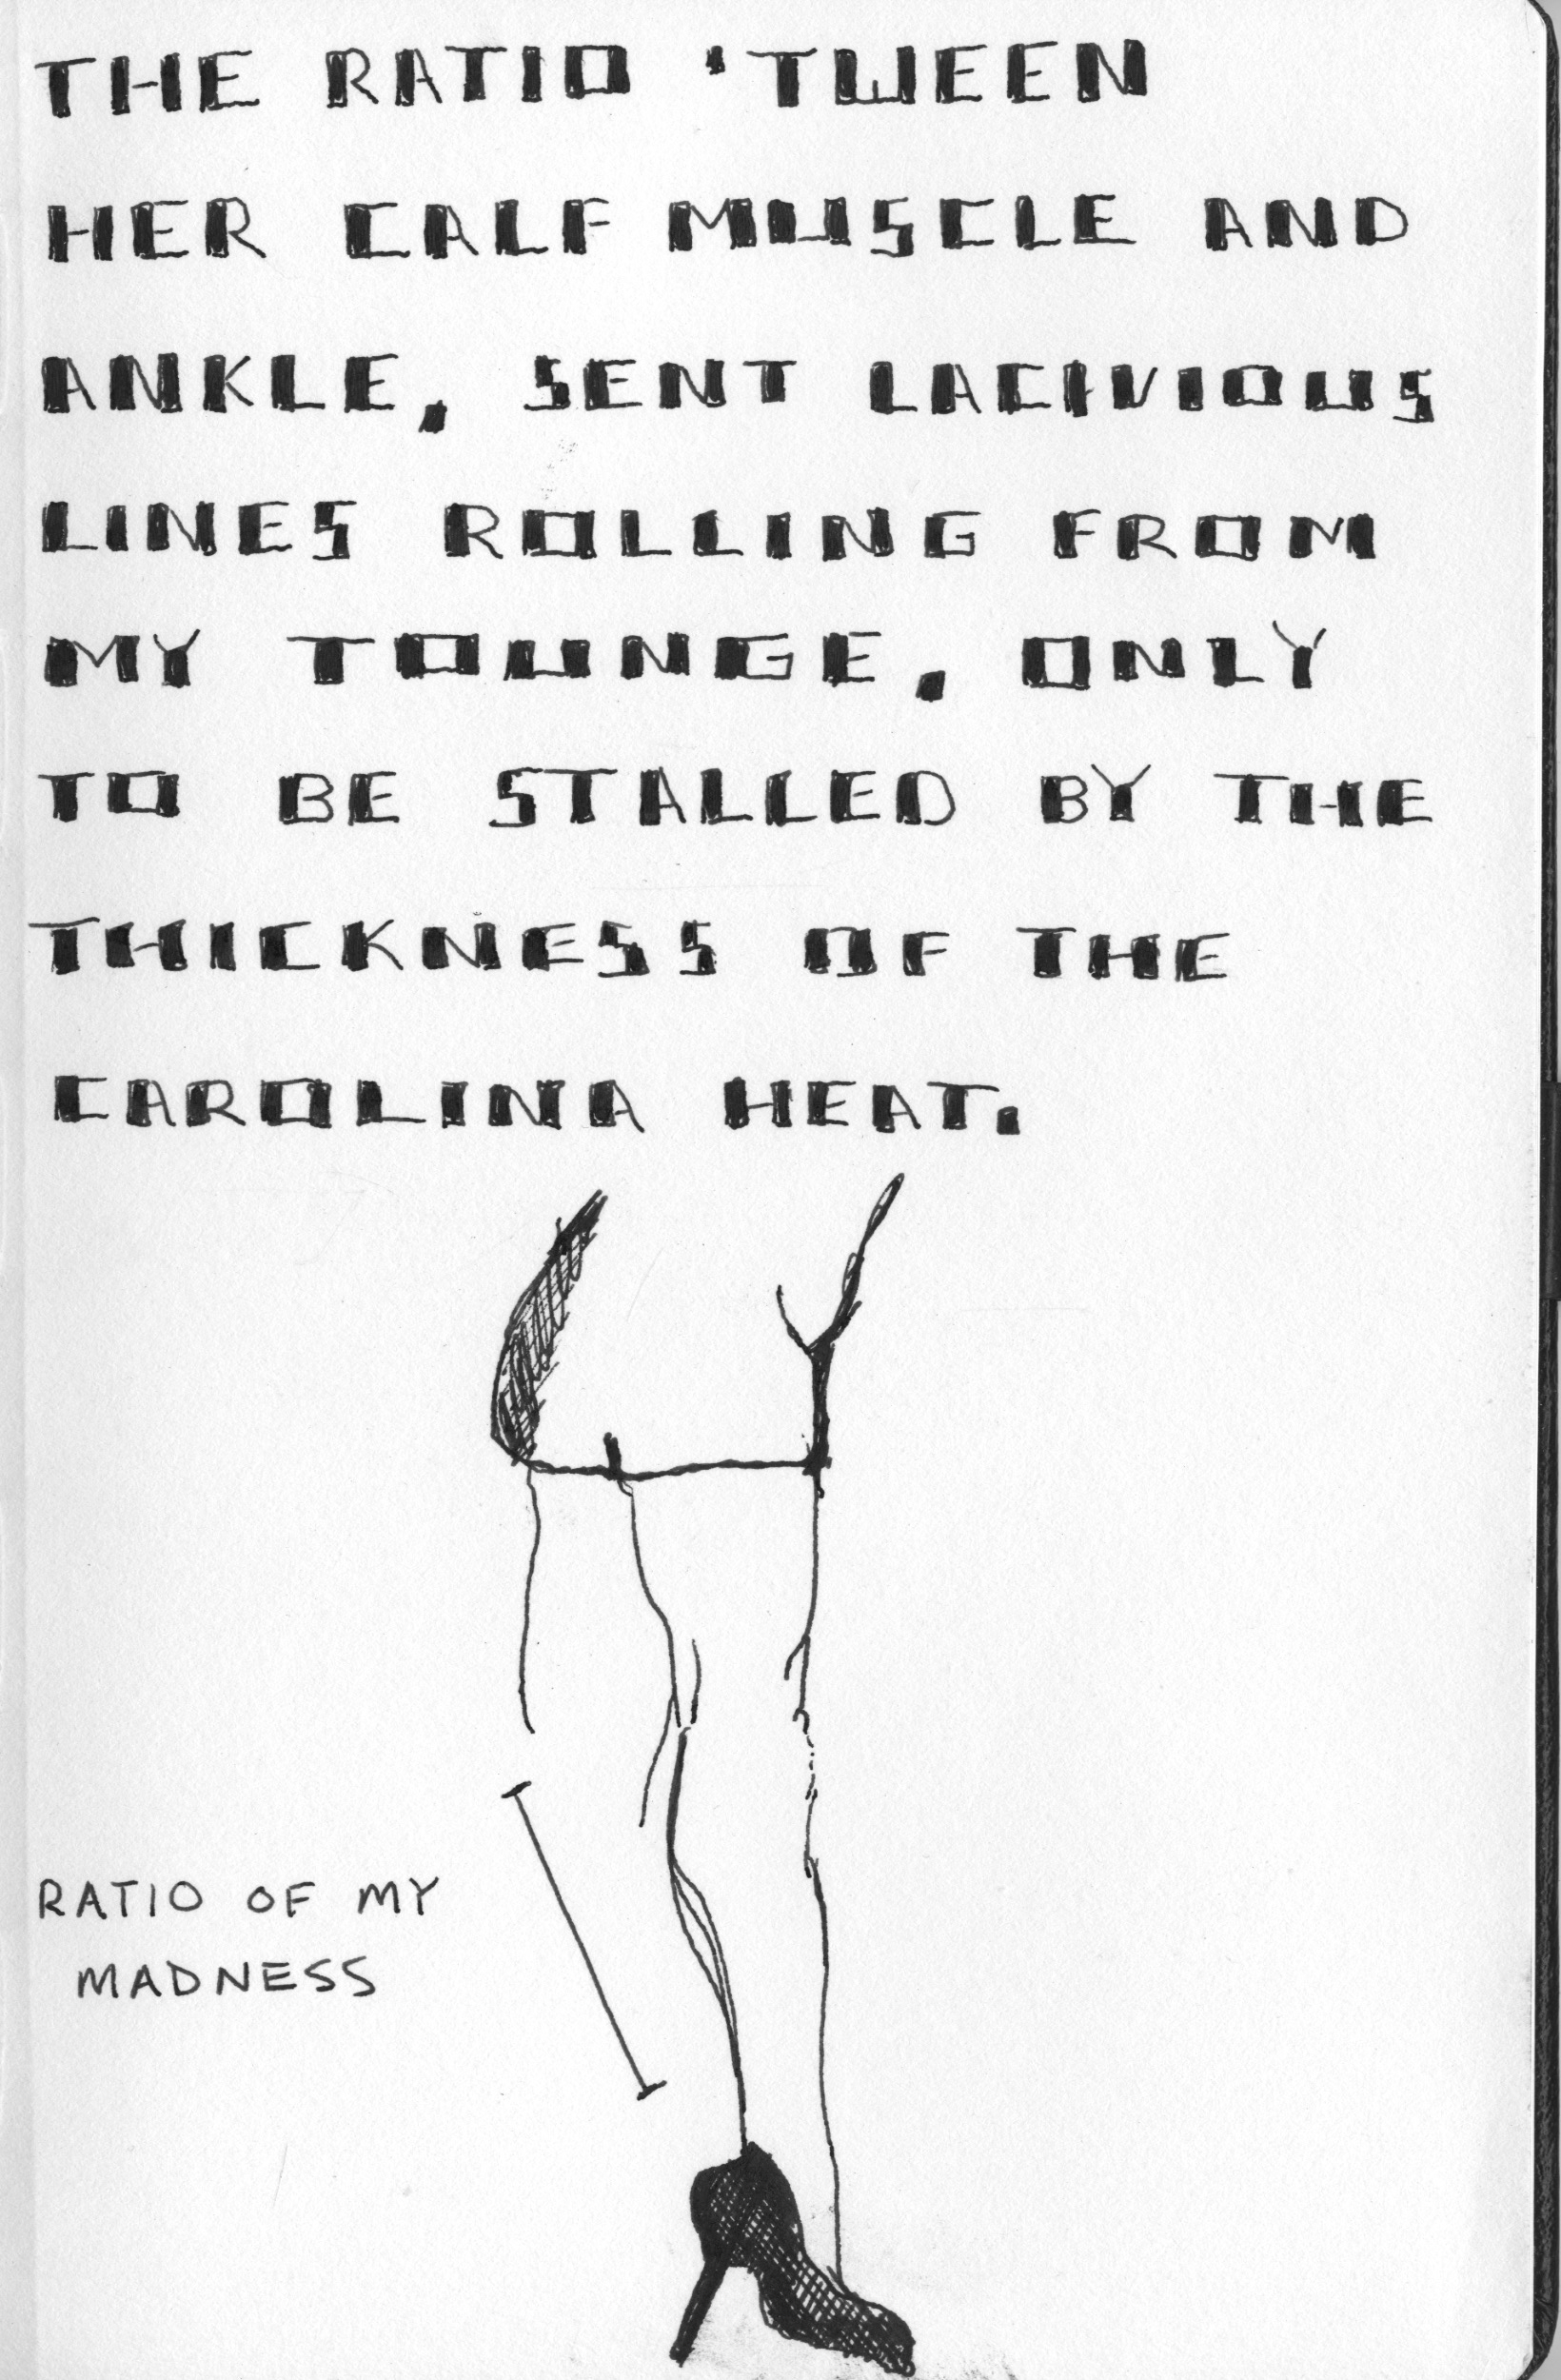 THE RATIO 'TWEEN
HER CALF MUSCLE AND
ANKLE, SENT LACIVIOUS
LINES ROLLING FROM
MY TOUNGE, ONLY
TO BE STALLED BY THE
THICKNESS OF THE
CAROLINA HEAT.
RATIO OF MY
MADNESS